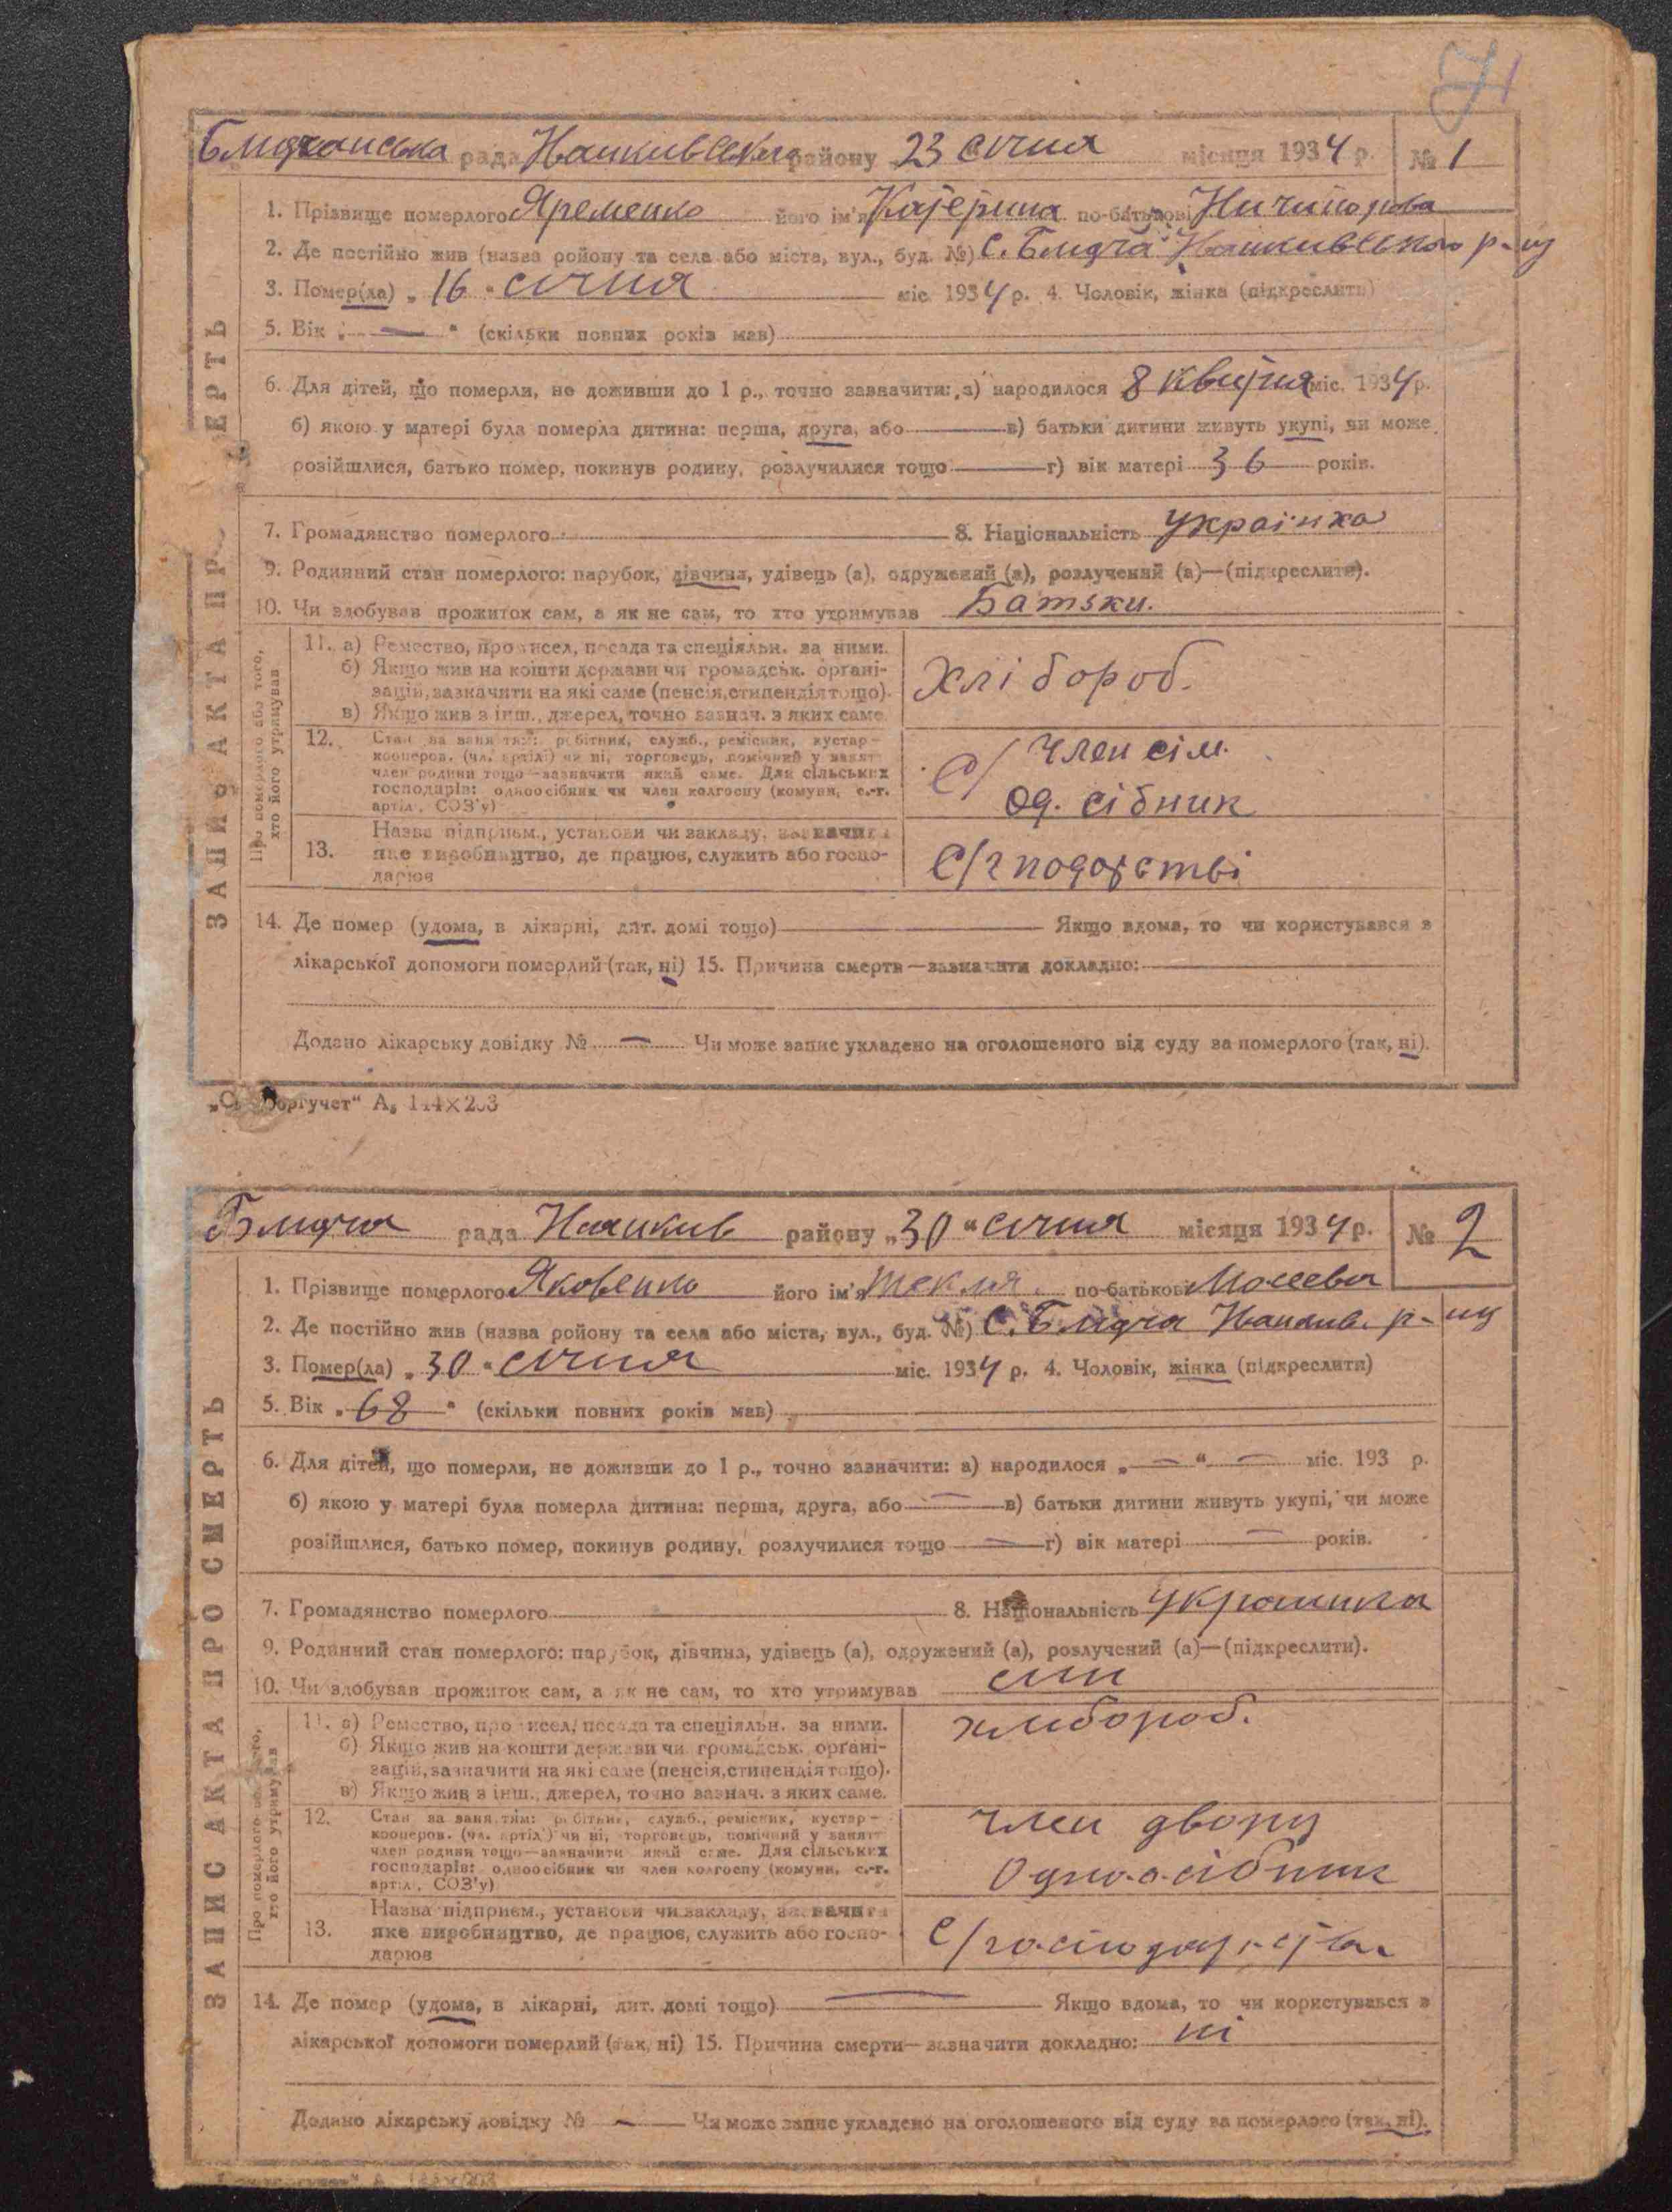 71
Блидчанська рада Іванківського району 23 січня місяця 1934 р. № 1
ЗАПИС АКТА ПРО СМЕРТЬ
1. Прізвище померлого Яременко його ім'я Катерина по-батькові Ничипорова
2. Де постійно жив (назва ройону та села або міста, вул., буд. №) С. Блидча Іванківського р-ну
3. Помер(ла) „ 16 “ січня міс. 1934 р. 4. Чоловік, жінка (підкреслити)
5. Вік „ — “ (скільки повних років мав)
6. Для дітей, що померли, не доживши до 1 р., точно зазначити: а) народилося 8 квітня міс. 1934 р.
б) якою у матері була померла дитина: перша, друга, або — в) батьки дитини живуть укупі, чи може
розійшлися, батько помер, покинув родину, розлучилися тощо — г) вік матері 36 років.
7. Громадянство померлого — 8. Національність Українка
9. Родинний стан померлого: парубок, дівчина, удівець (а), одружений (а), розлучений (а)—(підкреслити).
10. Чи здобував прожиток сам, а як не сам, то хто утримував Батьки.
Про померлого або того,
хто його утримував
11. а) Ремество, промисел, посада та спеціяльн. за ними.
б) Якщо жив на кошти держави чи громадськ. органі-
зацій, зазначити на які саме (пенсія, стипендія тощо).
в) Якщо жив з інш., джерел, точно зазнач. з яких саме
Хлібороб.
12. Стан за заняттям: робітник, служб., ремісник, кустар—
кооперов. (чл. артілі) чи ні, торговець, помічний у занятті
член родини тощо—зазначити який саме. Для сільських
господарів: одноосібник чи член колгоспу (комуни, с.-г.
артілі, СОЗ'у)
С/ Член сім.
од. сібник
13. Назва підприєм., установи чи закладу, зазначити
яке виробництво, де працює, служить або госпо-
дарює
С/г подарстві
14. Де помер (удома, в лікарні, дит. домі тощо) — Якщо вдома, то чи користувався з
лікарської допомоги померлий (так, ні) 15. Причина смерти—зазначити докладно: —
Додано лікарську довідку № — Чи може запис укладено на оголошеного від суду за померлого (так, ні).
Боргучет“ А₅ 144×203
Блидча рада Іванків району „ 30 “ січня місяця 1934 р. № 2
ЗАПИС АКТА ПРО СМЕРТЬ
1. Прізвище померлого Яковенко його ім'я Текля по-батькові Мосеева
2. Де постійно жив (назва ройону та села або міста, вул., буд. №) С. Блидча Іванків. р-ну
3. Помер(ла) „ 30 “ січня міс. 1934 р. 4. Чоловік, жінка (підкреслити)
5. Вік „ 68 “ (скільки повних років мав)
6. Для дітей, що померли, не доживши до 1 р., точно зазначити: а) народилося „ — “ — міс. 193 р.
б) якою у матері була померла дитина: перша, друга, або — в) батьки дитини живуть укупі, чи може
розійшлися, батько помер, покинув родину, розлучилися тощо — г) вік матері — років.
7. Громадянство померлого — 8. Національність Українка
9. Родинний стан померлого: парубок, дівчина, удівець (а), одружений (а), розлучений (а)—(підкреслити).
10. Чи здобував прожиток сам, а як не сам, то хто утримував син
Про померлого або того,
хто його утримував
11. а) Ремество, промисел, посада та спеціяльн. за ними.
б) Якщо жив на кошти держави чи громадськ. органі-
зацій, зазначити на які саме (пенсія, стипендія тощо).
в) Якщо жив з інш., джерел, точно зазнач. з яких саме.
хлібороб.
12. Стан за заняттям: робітник, служб., ремісник, кустар—
кооперов. (чл. артілі) чи ні, торговець, помічний у занятті
член родини тощо—зазначити який саме. Для сільських
господарів: одноосібник чи член колгоспу (комуни, с.-г.
артілі, СОЗ'у)
член двору
Одноосібник
13. Назва підприєм., установи чи закладу, зазначити
яке виробництво, де працює, служить або госпо-
дарює
14. Де помер (удома, в лікарні, дит. домі тощо) — Якщо вдома, то чи користувався з
лікарської допомоги померлий (так, ні) 15. Причина смерти—зазначити докладно: ні
Додано лікарську довідку № — Чи може запис укладено на оголошеного від суду за померлого (так, ні).